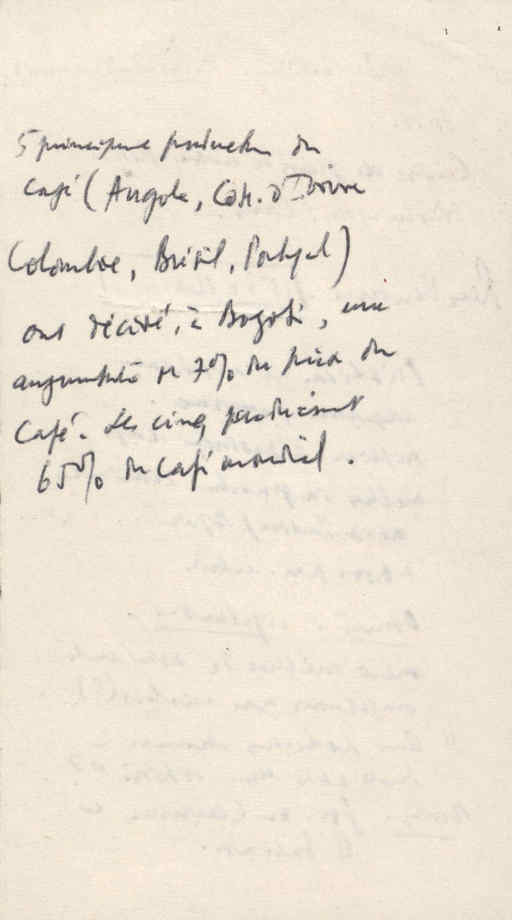 5 principaux producteurs du
café (Angola, Côte d'Ivoire
Colombie, Brésil, Portugal)
ont décidé, à Bogota, une
augmentation de 7% du prix du
café. Les cinq produisent
65% du café mondial.